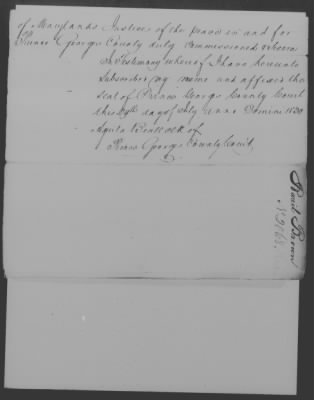 of Maryland Justices of the peace in and for
Prince Georges County duly Commissioned & sworn
In Testimony whereof I have hereunto
Subscribed my name and affixed the
Seal of Prince Georges County Court
this day of July anno Domini 1820
Aquila Beall clk of
Prince Georges County Court
David Brown